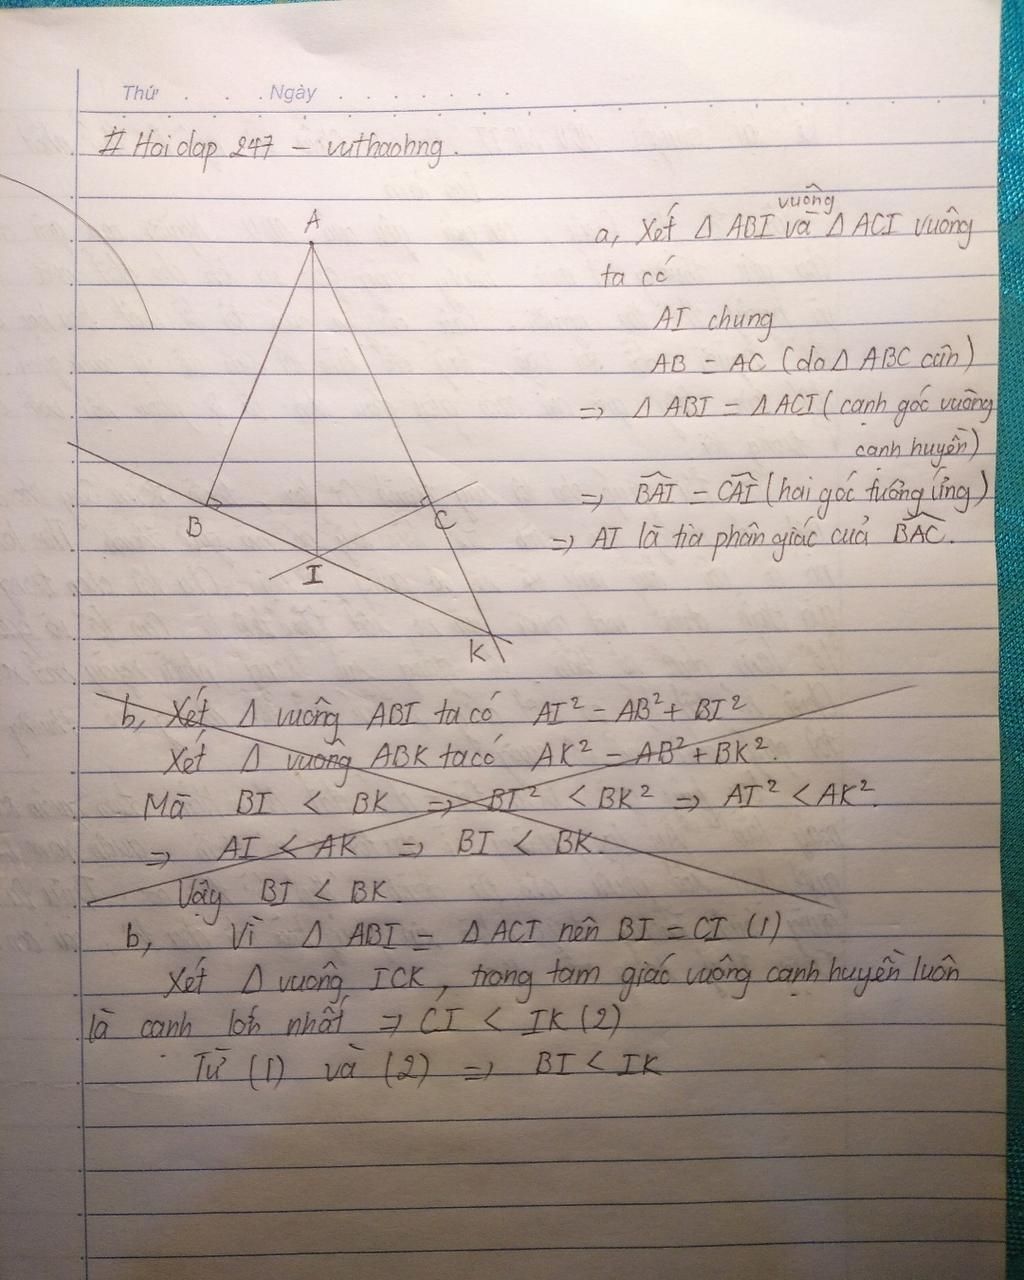 Thứ . . . . Ngày . . . . . . .
# Hoi dap 247 – vuthaohng.
A
B
C
I
K
a, Xét Δ ABI vuông và Δ ACI vuông
ta có
AI chung
AB = AC (do Δ ABC cân)
=> Δ ABI = Δ ACI (cạnh góc vuông
cạnh huyền)
=> BAI = CAI (hai góc tương ứng)
=> AI là tia phân giác cuả BAC.
b, Xét Δ vuông ABI ta có AI² = AB² + BI²
Xét Δ vuông ABK ta có AK² = AB² + BK².
Mà BI < BK => BI² < BK² => AI² < AK².
=> AI < AK => BI < BK.
Vậy BI < BK.
b, Vì Δ ABI = Δ ACI nên BI = CI (1)
Xét Δ vuông ICK, trong tam giác vuông cạnh huyền luôn
là cạnh lớn nhất => CI < IK (2)
Từ (1) và (2) => BI < IK